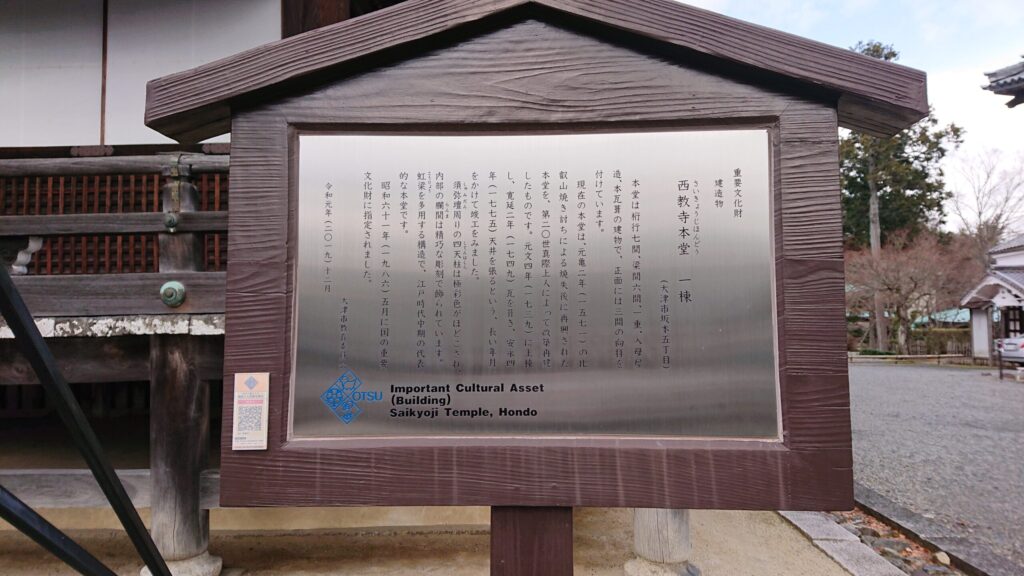 重要文化財
建造物
さいきょうじほんどう
西教寺本堂　一棟
(大津市坂本五丁目)
本堂は桁行七間、梁間六間、一重、入母屋
造、本瓦葺の建物で、正面には三間の向拝を
付けています。
現在の本堂は、元亀二年(一五七一)の比
叡山焼き討ちによる焼失後に再興された
本堂を、第二〇世真際上人によって改築再建
したものです。元文四年(一七三九)に上棟
し、寛延二年(一七四九)瓦を葺き、安永四
年(一七七五)天井を張るという、長い年月
をかけて竣工をみました。
須弥壇周りの四天柱は極彩色がほどこされ、
内部の欄間は精巧な彫刻で飾られています。
虹梁を多用する構造で、江戸時代中期の代表
的な本堂です。
昭和六十一年(一九八六)五月に国の重要
文化財に指定されました。
令和元年(二〇一九)十二月
大津市教育委員会
OTSU
Important Cultural Asset
(Building)
Saikyoji Temple, Hondo